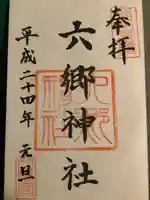 奉拝
六郷神社
平成二十四年 元旦